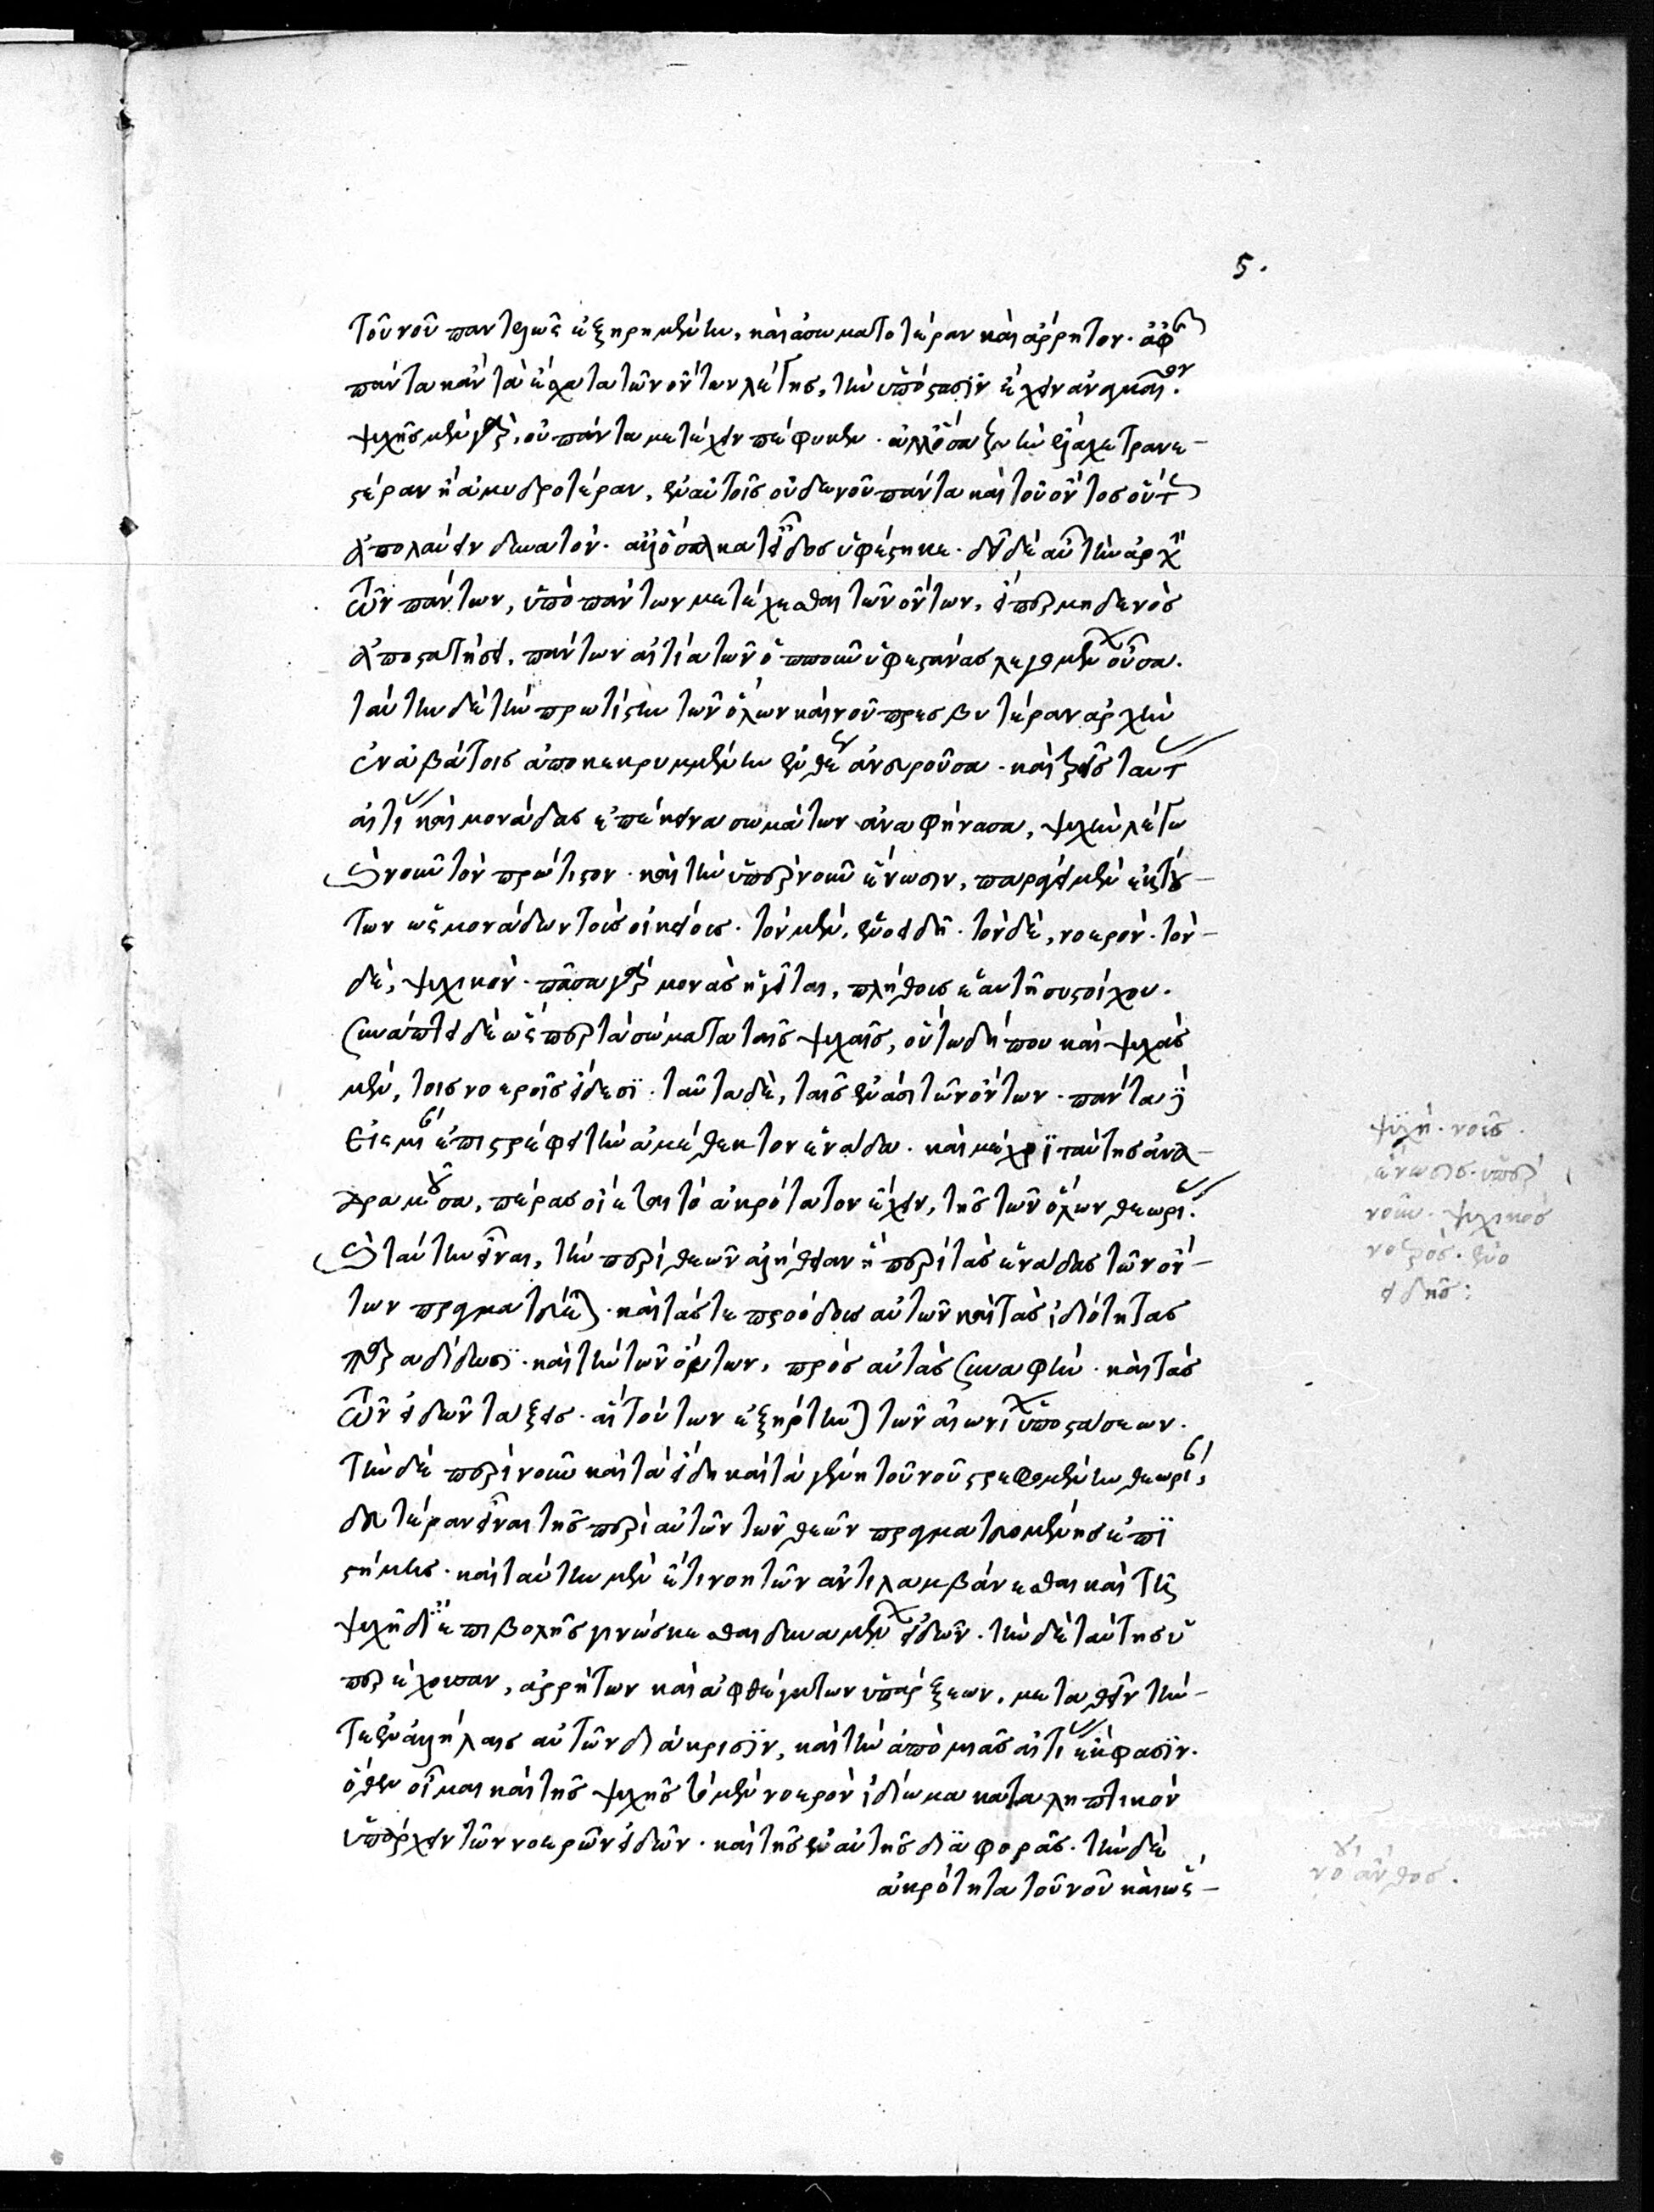 5.
τοῦ νοῦ παντελῶς ἐξηρημένην, καὶ ἀσωματοτέραν καὶ ἄρρητον· ἀφ' ἧς
πάντα κἂν τὰ ἔσχατα τῶν ὄντων λέγης, τὴν ὑπόστασϊν ἔχειν ἀναγκαῖον.
ψυχῆς μὲν γὰρ, οὐ πάντα μετέχειν πέφυκεν· ἀλλ' ὅσα ζωὴν εἴλαχε τρανε-
στέραν ἢ ἀμυδροτέραν, ἐν αὐτοῖς οὐδὲ νοῦ πάντα καὶ τοῦ ὄντος οὕτως
ἀπολαύειν δυνατόν· ἀλλ' ὅσα κατ' εἶδος ὑφέστηκε· δεῖ δὲ αὖ τὴν ἀρχὴν
τῶν πάντων, ὑπὸ πάντων μετέχεσθαι τῶν ὄντων, εἴπερ μηδενὸς
ἀποστατήσει, πάντων αἰτία τῶν ὁπωσοῦν ὑφεστάναι λεγομένων οὖσα.
ταύτην δὲ τὴν πρωτίστην τῶν ὅλων καὶ νοῦ πρεσβυτέραν ἀρχὴν
ἐν ἀβάτοις ἀποκεκρυμμένην ἐνθέως ἀνευροῦσα· καὶ τρεῖς ταύτας
αἰτίας καὶ μονάδας ἐπέκεινα σωμάτων ἀναφήνασα, ψυχὴν λέγω
καὶ νοῦν τὸν πρώτιστον· καὶ τὴν ὑπὲρ νοῦν ἕνωσιν, παράγει μὲν ἐκ τού-
των ὡς μονάδων τοὺς οἰκείους· τὸν μὲν, ἑνοειδῆ· τὸν δὲ, νοερόν· τὸν-
δὲ, ψυχικόν· πᾶσα γὰρ μονὰς ἡγεῖται, πλήθους ἑαυτῆ συστοίχου.
συνάπτει δὲ ὥσπερ τὰ σώματα ταῖς ψυχαῖς, οὕτω δήπου καὶ ψυχὰς
μὲν, τοῖς νοεροῖς εἴδεσϊ· ταῦτα δὲ, ταῖς ἑνάσι τῶν ὄντων· πάντα δὲ
εἰς μίαν ἐπιστρέφει τὴν ἀμέθεκτον ἑνάδα· καὶ μέχρϊ ταύτης ἀνα-
δραμοῦσα, πέρας οἴεται τὸ ἀκρότατον ἔχειν, τῆς τῶν ὅλων θεωρίας.
καὶ ταύτην εἶναι, τὴν περὶ θεῶν ἀλήθειαν ἣ περὶ τὰς ἑνάδας τῶν ὄν-
των πραγματεύεται· καὶ τάς τε προόδους αὐτῶν καὶ τὰς ἰδιότητας
παραδίδωσϊ· καὶ τὴν τῶν ὄντων, πρὸς αὐτὰς συναφὴν· καὶ τὰς
τῶν εἰδῶν τάξεις· αἳ τούτων ἐξήρτηνται τῶν ἑνιαίων ὑποστάσεων.
τὴν δὲ περὶ νοῦν καὶ τὰ εἴδη καὶ τὰ γένη τοῦ νοῦ στρεφομένην θεωρίαν,
δευτέραν εἶναι τῆς περὶ αὐτῶν τῶν θεῶν πραγματευομένης ἐπϊ
στήμης· καὶ ταύτην μὲν ἔτι νοητῶν ἀντιλαμβάνεσθαι καὶ τῆ
ψυχῆ δι' ἐπιβολῆς γινώσκεσθαι δυναμένων εἰδῶν· τὴν δὲ ταύτης ὑ
περέχουσαν, ἀρρήτων καὶ ἀφθέγκτων ὑπάρξεων, μεταθεῖν τήν-
τε ἐν ἀλλήλαις αὐτῶν διάκρισϊν, καὶ τὴν ἀπὸ μιᾶς αἰτίας ἔκφασϊν.
ὅθεν οἶμαι καὶ τῆς ψυχῆς τὸ μὲν νοερὸν ἰδίωμα καταληπτικὸν
ὑπάρχειν τῶν νοερῶν εἰδῶν· καὶ τῆς ἐν αὐτῆς δϊαφορᾶς. τὴν δὲ
ἀκρότητα τοῦ νοῦ καὶ ὥς-
ψϋχή· νοῦς.
ἕνωσις· ὑπὲρ
νοῦν· ψυχικός
νοερός· ἑνο
ειδής:
νοῦ ἄνθος.